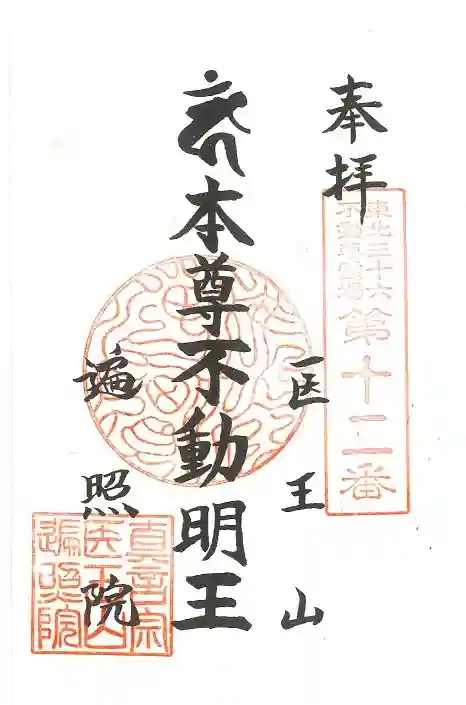 奉拝
東北三十六
不動尊霊場
第十二番
医王山
本尊不動明王
遍照院
真言宗
医王山
遍照院